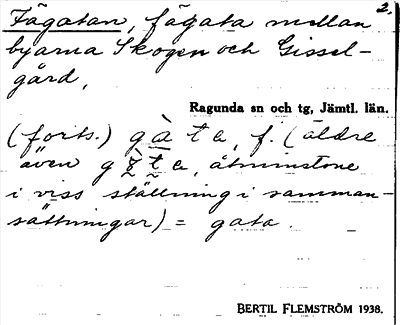 2.
Fägatan, fägata mellan
byarna Skogen och Gissel-
gård.
Ragunda sn och tg, Jämtl. län.
(forts.) gàta, f. (äldre
även g t a, åtminstone
i viss ställning i samman-
sättningar) = gata.
BERTIL FLEMSTRÖM 1938.